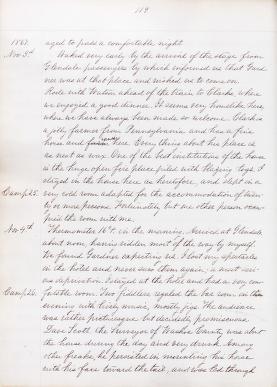 119
1867. aged to pass a comfortable night.
Nov 3rd Waked very early by the arrival of the stage from
Glendale passengers by which informed us that Gard-
ner was at that place and wished us to come on.
Rode with Watson ahead of the train to Clarks, where
we enjoyed a good dinner. It seems very homelike here,
where we have always been made so welcome. Clark is
a jolly farmer from Pennsylvania and has a fine
house and here. Every thing about his place is
as neat as wax. One of the best institutions of the house
is the huge open fire place piled with blazing logs. I
stayed in the house here as heretofore, and slept in a
Camp. 25. very cold room adapted for the accommodation of twen-
ty or more persons. Fortunately but one other person occu-
pied the room with me.
Nov 4th Thermometer 16° in the morning. Arrived at Glendale
about noon, having ridden most of the way by myself.
We found Gardner expecting us. I lost my spectacles
in the hotel and never saw them again; a most seri-
ous deprivation. Stayed at the hotel and had a very com-
Camp. 26. fortable room. Two fiddlers regaled the bar room in the
evening with lively music, mostly jigs. The audience
was rather picturesque but decidedly promiscuous.
Dave Scott the Surveyor of Washoe County was about
the house during the day and very drunk. Among
other freaks, he persisted in mounting his horse
with his face toward the tail, and was led through